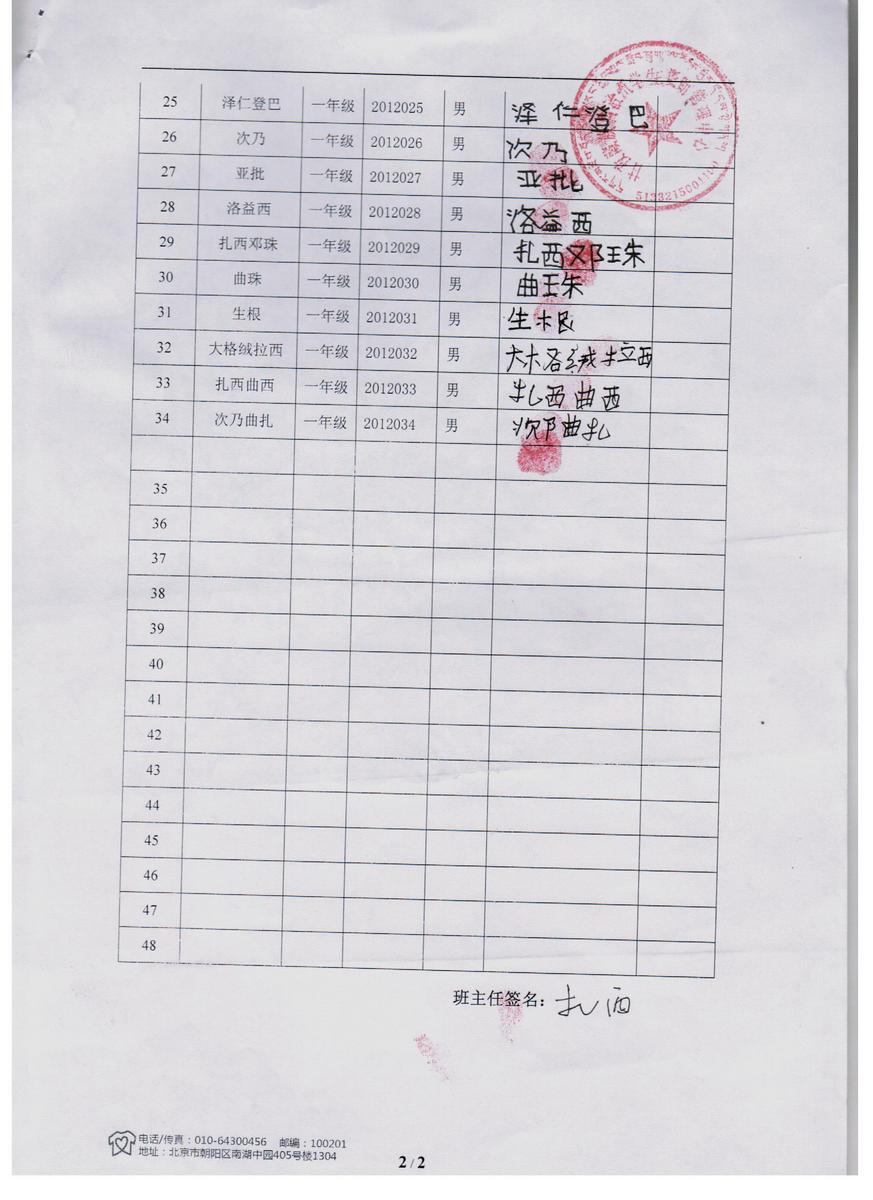 25 泽仁登巴 一年级 2012025 男 泽仁登巴
26 次乃 一年级 2012026 男 次乃
27 亚批 一年级 2012027 男 亚批
28 洛益西 一年级 2012028 男 洛益西
29 扎西邓珠 一年级 2012029 男 扎西邓珠
30 曲珠 一年级 2012030 男 曲珠
31 生根 一年级 2012031 男 生根
32 大格绒拉西 一年级 2012032 男 大格绒拉西
33 扎西曲西 一年级 2012033 男 扎西曲西
34 次乃曲扎 一年级 2012034 男 曲扎
35
36
37
38
39
40
41
42
43
44
45
46
47
48
班主任签名：扎西
电话/传真：010-64300456 邮编：100201
地址：北京市朝阳区南湖中园405号楼1304
2 / 2